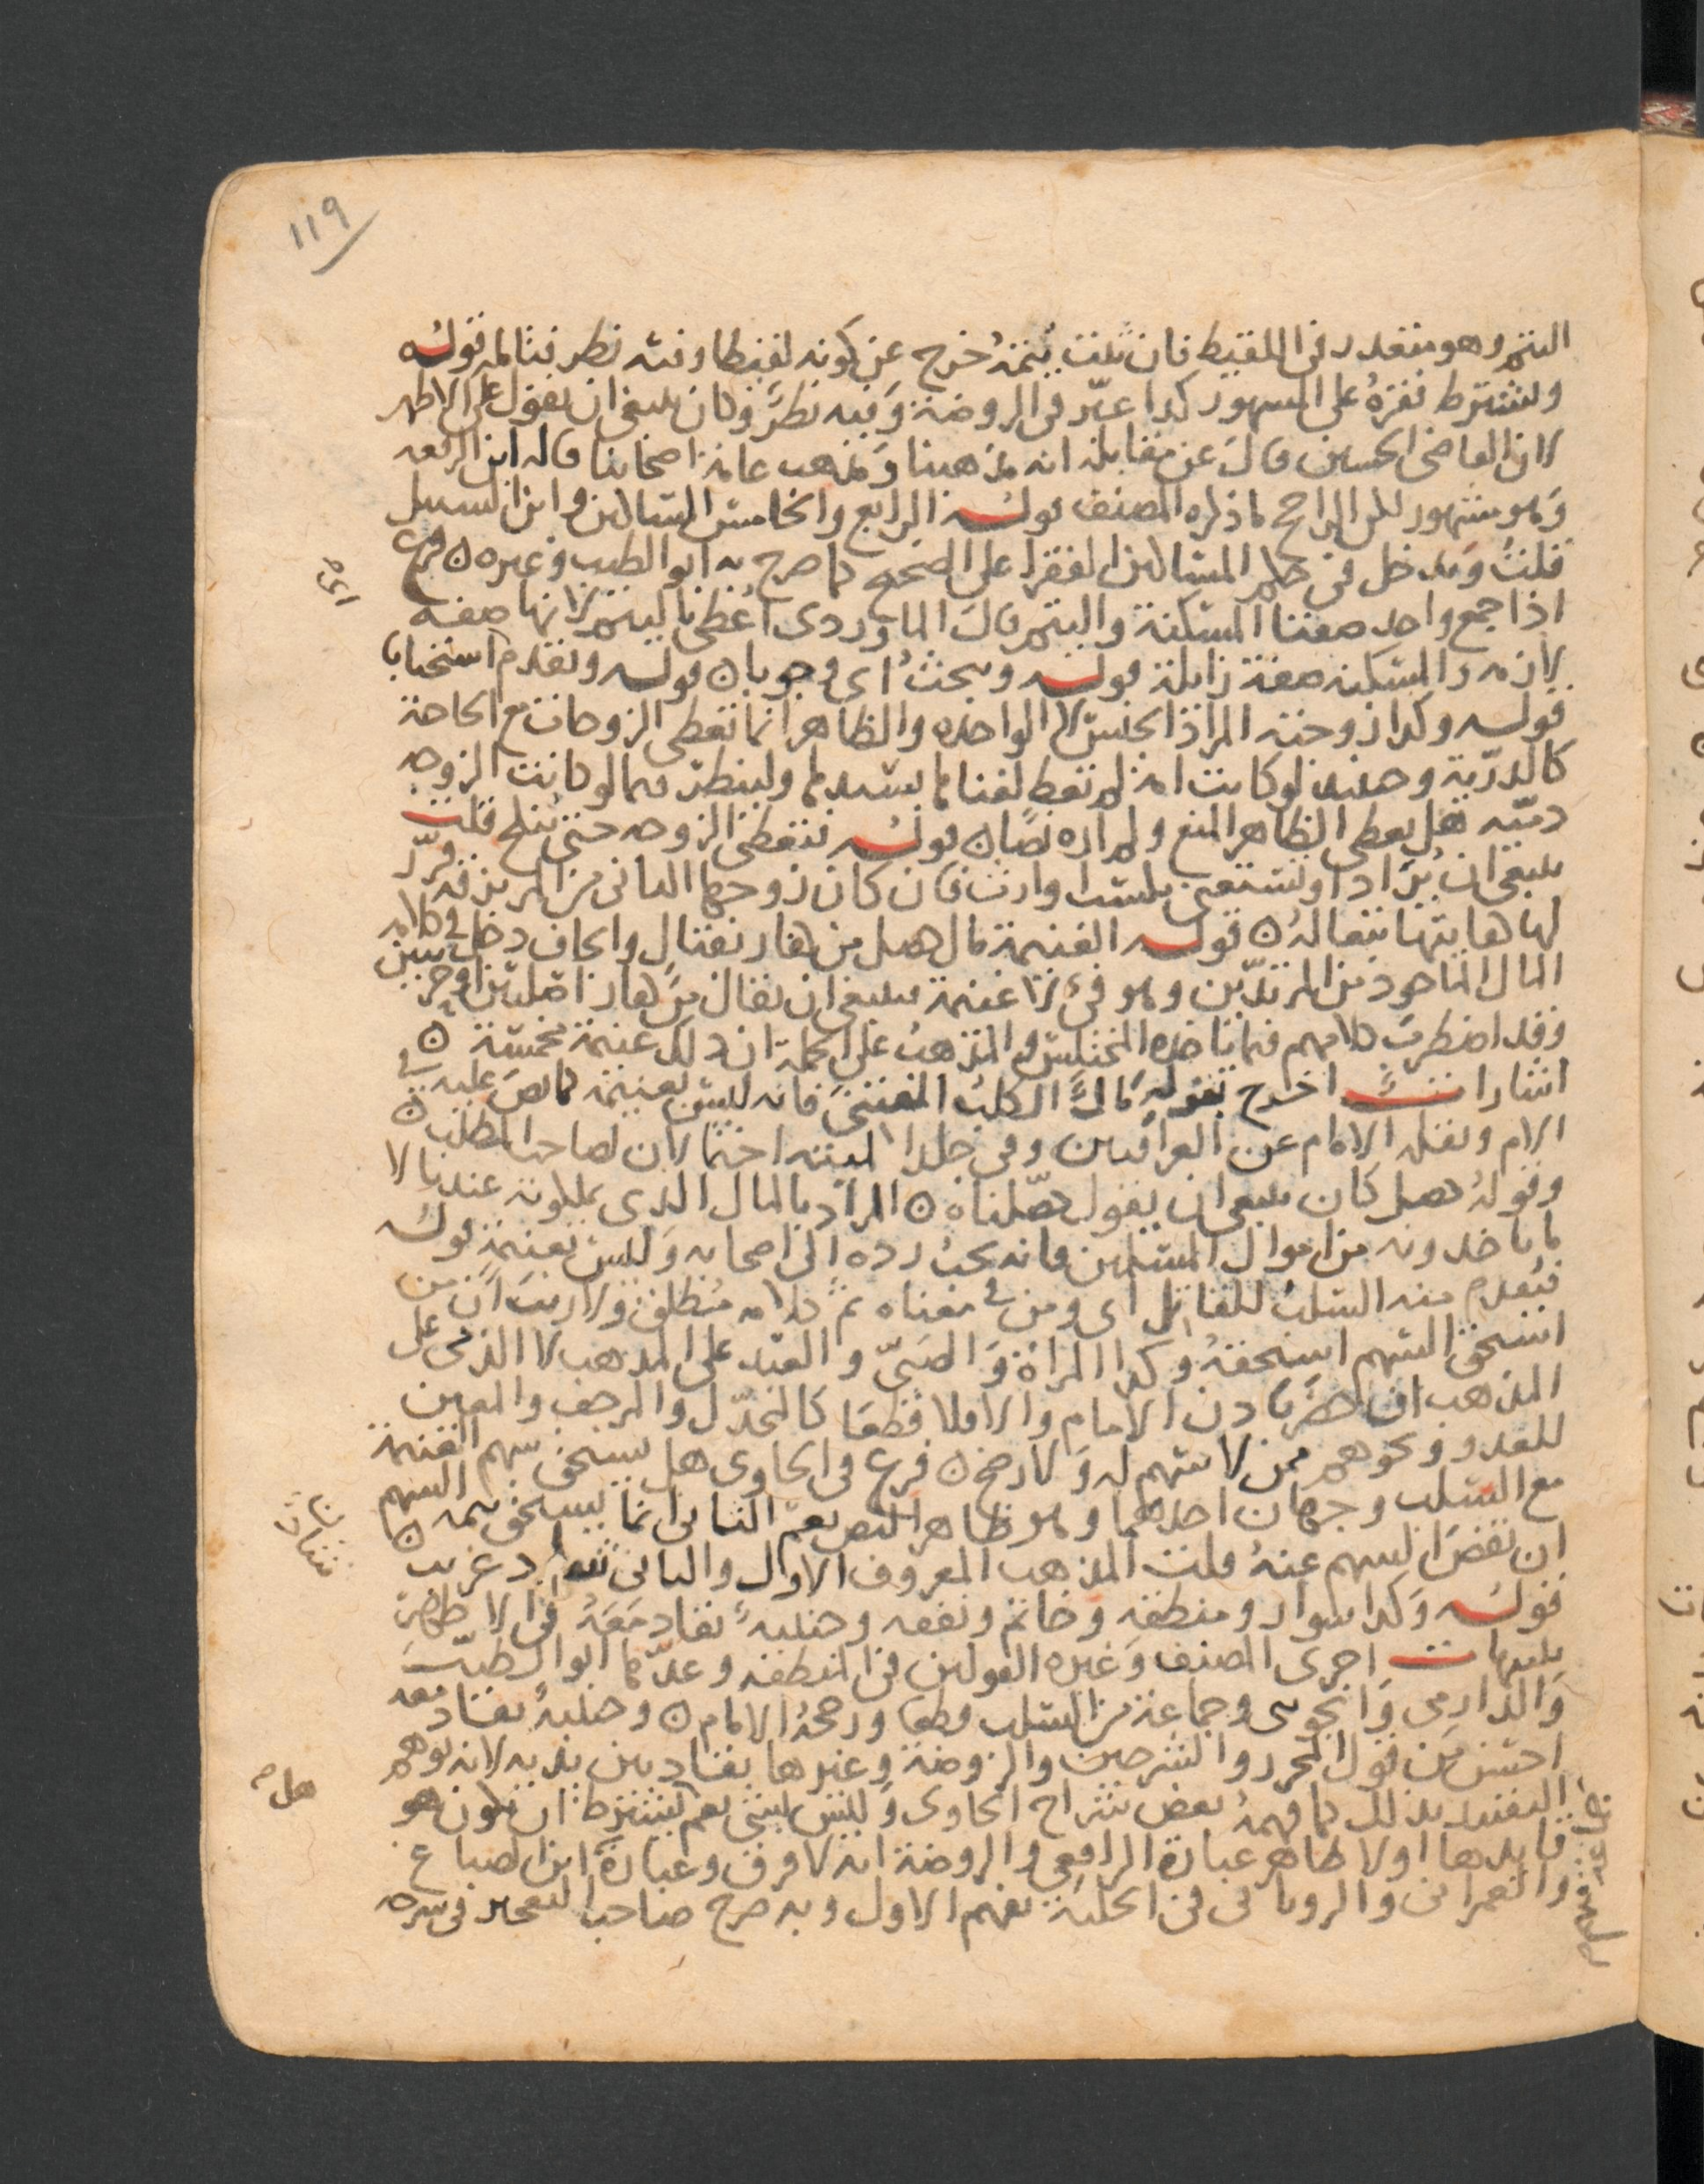 ١١٩
اليتم وهو متعذر في اللقيط فان ثبت يتمه خرج عن كونه لقيطا وفيه نظر فتامله قوله
ويشترط فقره على المشهور كذا عبر في الروضة وفيه نظر وكان ينبغي ان يقول على الاظهر
لان القاضي الحسين قال عن مقابله انه مذهبنا ومذهب عامة اصحابنا قاله ابن الرفعة
وهو مشهور لكن الراجح ما ذكره المصنف قوله الرابع والخامس المساكين وابن السبيل
قلت ويدخل في حكم المساكين الفقرا على الصحيح كما صرح به ابو الطيب وغيره ن فرع
اذا اجتمع واحد صفتا المسكنة واليتم قال الماوردي اعطي باليتم لانها صفة
لازمه والمسكنة صفة زايلة قوله وبحث اي وجوبا ن قوله وتقدم استحبابا
قوله وكذا زوجته المراد الجنس لا الواحده والظاهر انما تعطى الزوجات مع الحاجة
كالذرية وحينئذ لوكانت امة لم تعط لغناها بسيدها ولينظر فيما لو كانت الزوجه
ذميه هل تعطى الظاهر المنع ولم اره نصا ن قوله فتعطى الزوجه حتى تنكح قلت
ينبغي ان يزاد او تستغني بكسب او ارث فان كان زوجها الثاني من المرتزقة قرر
لها كفايتها تبعا له ن قوله الغنيمة مال حصل من كفار بقتال وايجاف دخل في كلامه
المال الماخوذ من المرتدين وهو فيء لا غنيمة فينبغي ان يقال من كفار اصليين حربيين
وقد اضطرب كلامهم فيما ياخذه المختلس والمذهب على الجملة ان ذلك غنيمة مخمسة ن
اشارات اخرج بقوله مال الكلب المقتنى فانه ليس بغنيمة كما نص عليه في
الام ونقله الامام عن العراقيين وفي جلد الميته احتمالان لصاحب المطلب ن
وقوله حصل كان ينبغي ان يقول حصلناه ن المراد بالمال الذي يملكونه عندنا لا
ما ياخذونه من اموال المسلمين فانه يجب رده الى اصحابه وليس بغنيمة قوله
فيقدم منه السلب للقاتل اي ومن في معناه ثم كلامه مطلق ولا ريب ان من
استحق السهم استحقه وكذا المراة والصبي والعبد على المذهب لا الذمي على
المذهب ان حضر باذن الامام والا فلا قطعا كالمخذل والمرجف والمعين
للعدو ونحوهم ممن لا سهم له ولا رضخ ن فرع في الحاوي هل يستحق سهم الغنيمة
مع السلب وجهان احدهما وهو ظاهر النص نعم الثاني انما يستحق تتمة السهم
ان نقص السلب عنه قلت المذهب المعروف الاول والثاني شاذ غريب ن
قوله وكذا سوار ومنطقه وخاتم ونفقه وجنيبة تقاد معه في الاظهر
تنبيهات اجرى المصنف وغيره القولين في المنطقه وعدها ابو الطيب
والدارمي والجويني وجماعة من السلب قطعا ورجحه الامام ن وجنيبة تقاد معه
احسن من قول المحرر والشرحين والروضة وغيرها تقاد بين يديه لانه يوهم
التقييد بذلك كما فهمه بعض شراح الحاوي وليس بشي نعم يشترط ان يكون هو
قايدها او لا ظاهر عبارة الرافعي والروضة انه لا فرق وعبارة ابن الصباغ
والعمراني والروياني في الحلية تفهم الاول وبه صرح صاحب التعجيز في شرحه